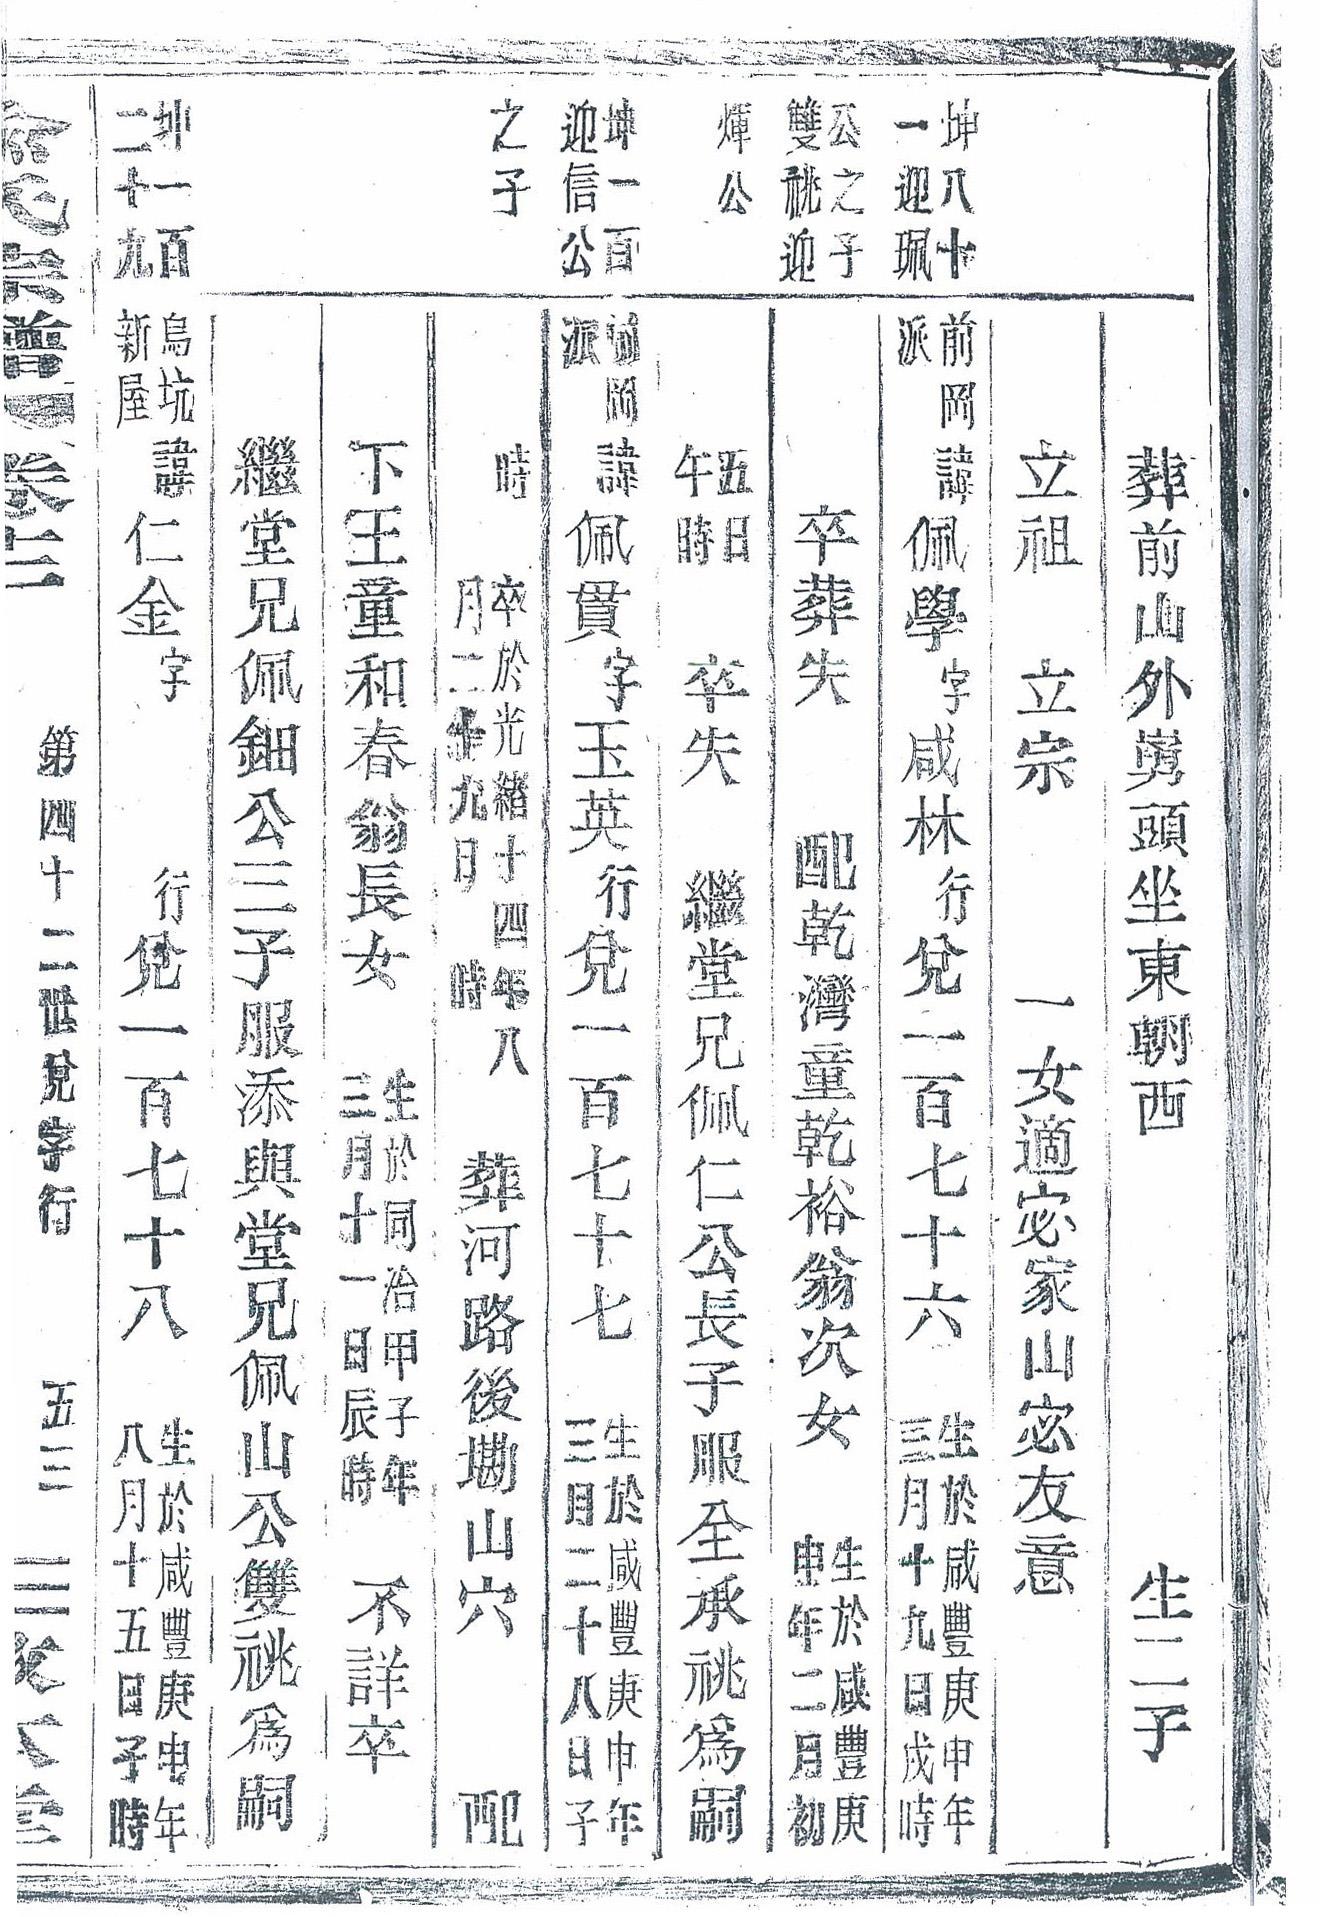 葬前山外嶴頭坐東朝西　生二子
立祖　立宗　一女適宓家山宓友意
坤八十
一迎珮
前岡
派
諱佩學字咸林行兌一百七十六
生於咸豐庚申年
三月十九日戌時
公之子
雙祧迎
卒葬失　配乾灣童乾裕翁次女
生於咸豐庚
申年二月初
煇公
五日
午時
卒失　繼堂兄佩仁公長子服至承祧爲嗣
坤一百
迎信公
前岡
派
諱佩貫字玉英行兌一百七十七
生於咸豐庚申年
三月二十八日子
之子
時
卒於光緒十四年八
月二十九日　時
葬河路後墈山穴　配
下王童和春翁長女
生於同治甲子年
三月十一日辰時
不詳卒
繼堂兄佩鈿公三子服添與堂兄佩山公雙祧爲嗣
坤一百
二十九
烏坑
新屋
諱仁金字　行兌一百七十八
生於咸豐庚申年
八月十五日子時
氏宗譜　卷十二
第四十二世兌字行　五三